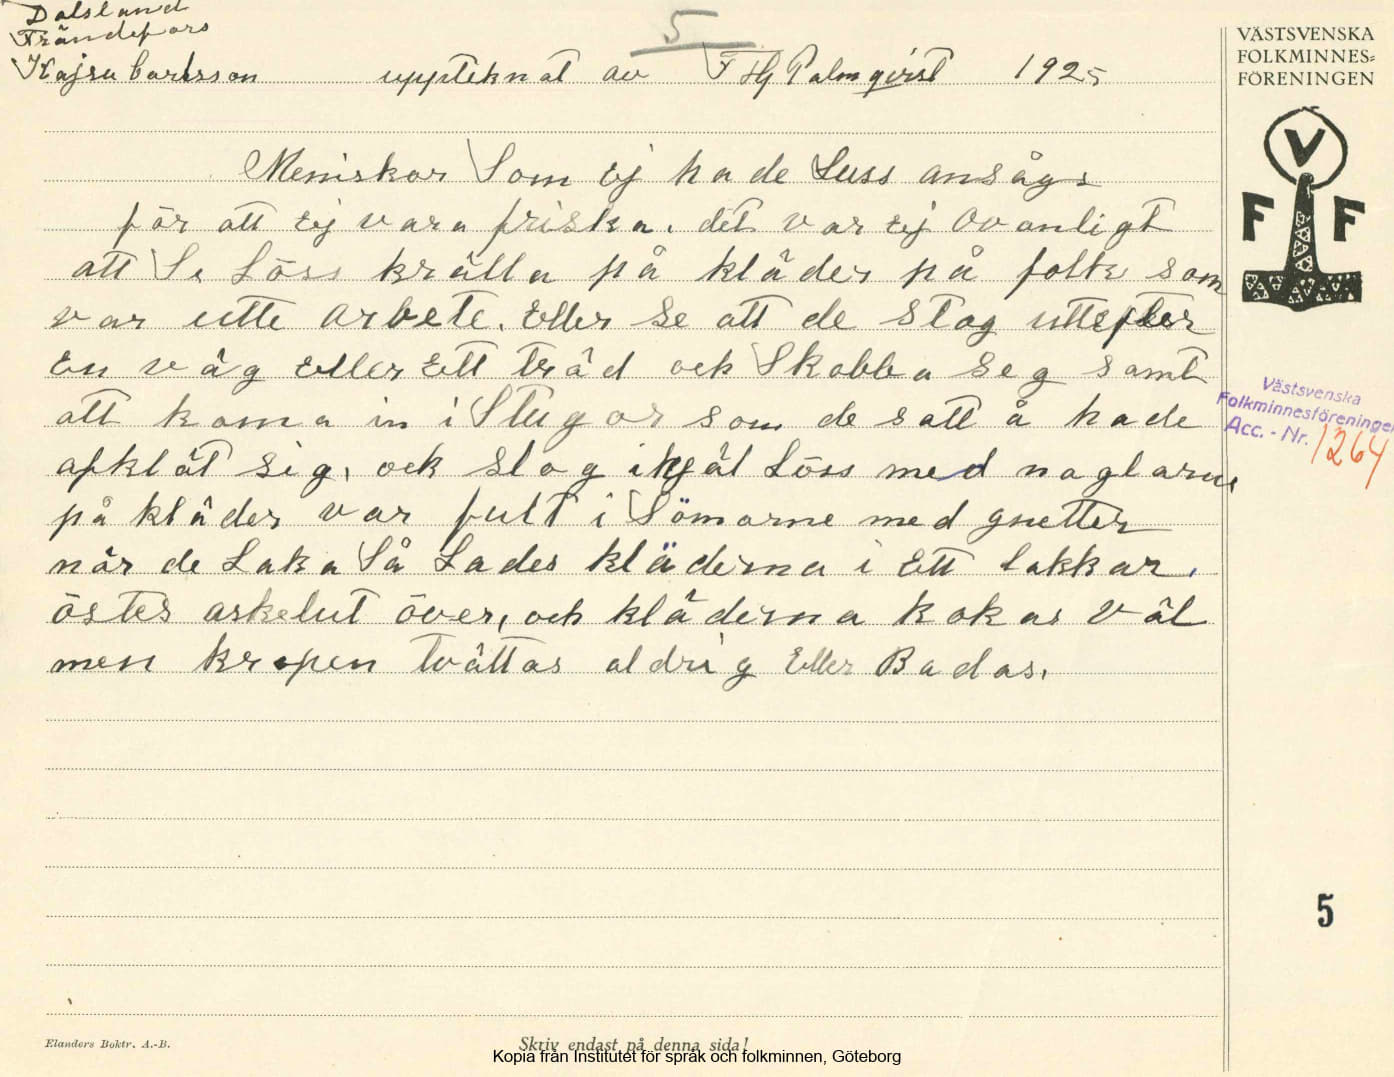 Dalsland
Frändefors
Kajsa Carlsson uppteknat av F Hj Palmqvist 1925
5
VÄSTSVENSKA
FOLKMINNES=
FÖRENINGEN
V
F F
Meniskor Som ej hade Luss ansågs
för att ej vara friska. det var ej ovanligt
att Se Löss krälla på kläder på folk som
var utte arbete. Eller se att de Stog uttefter
En väg Eller Ett träd ock Skabba Seg samt
att koma in i Stugor som de satt å hade
afklät sig, ock Slog ihjäl Löss med naglarne
på kläder var fult i Sömarne med gnetter
när de Laka Så Lades kläderna i Ett Lakkar,
östes askelut över, och kläderna kokas väl
men kropen tvättas aldrig Eller Badas.
Västsvenska
Folkminnesföreningen
Acc. - Nr. 1264
5
Elanders Boktr. A.-B.
Skriv endast på denna sida!
Kopia från Institutet för språk och folkminnen, Göteborg